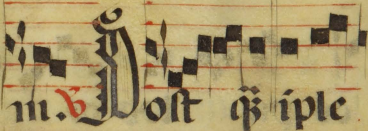 m. V Post q̃ iple